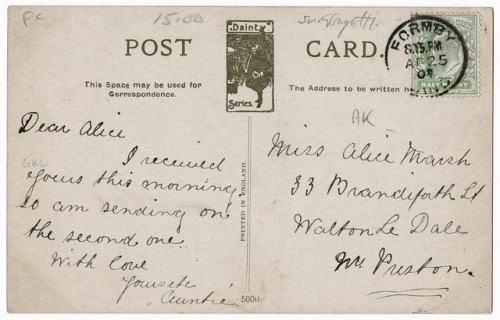 PC
15.00
Suffragette.
POST CARD.
Dainty
Series.
FORMBY
8.15.PM
AP 25
09
LANC
HALFPENNY
This Space may be used for
Correspondence.
The Address to be written he
AK
GKL
Dear Alice
I received
yours this morning
so am sending on
the second one.
With love
Yours etc
Auntie.
PRINTED IN ENGLAND.
5000.
Miss Alice Marsh
33 Brandiforth St
Walton Le Dale
Nr Preston.